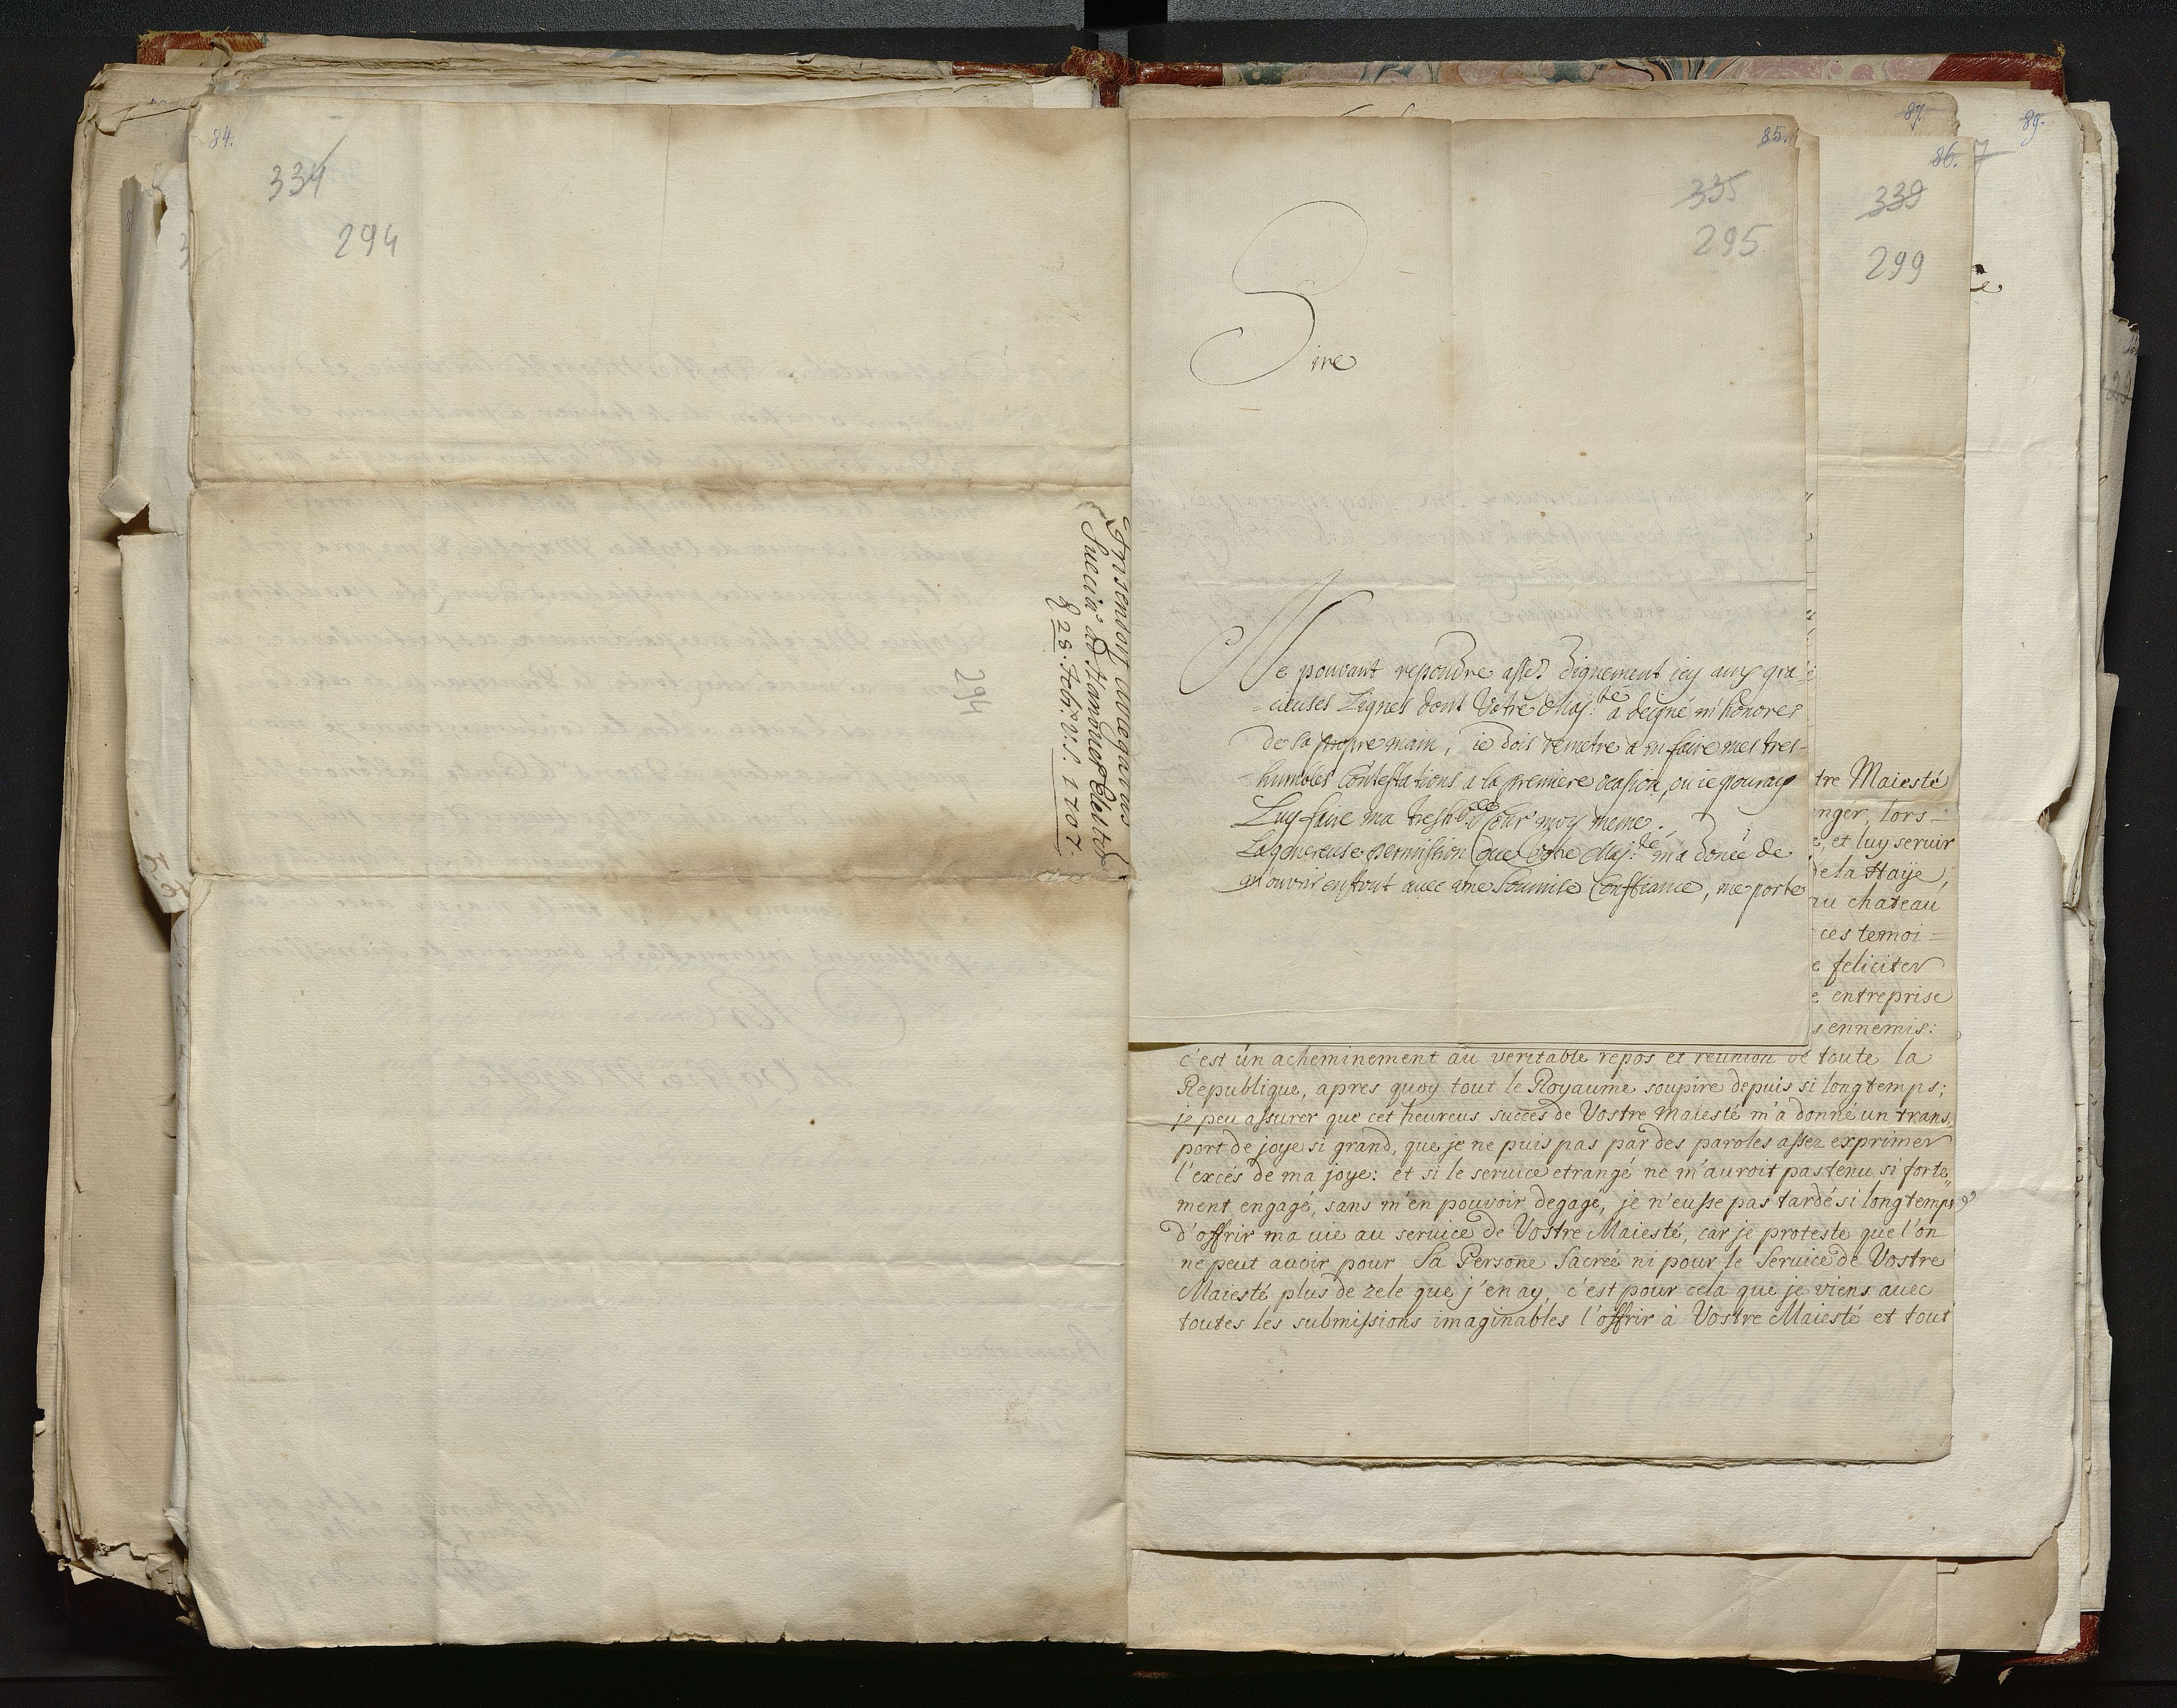 84.
334
294
Frisendorf ablegatus
Sueciæ ad Hanover
d 28. Febr. V. S. 1707.
294
85.
335
295.
Sire
Ne pouvant repondre assez dignement icy aux gra=
=cieuses Lignes dont Votre Maj:té a deigné m'honorer
de sa propre main, ie dois remetre a en faire mes tres-
humbles Contestations a la premiere ocasion, ou ie pouray
Luy faire ma Cour moy meme.
La genereuse permission que Votre Maj:té m'a doneé de
m'ouvrir en tout avec une Soumise Confiance, me porte
87.
86.
339
299
89.
7
tre Maiesté
nger, lors=
e, et luy servir
de la Haye,
au chateau
ces temoi=
e feliciter
e entreprise
s ennemis:
c'est un acheminement au veritable repos et reunion de toute la
Republique, apres quoy tout le Royaume soupire depuis si longtemps;
je peu assurer que cet heureus succes de Vostre Maiesté m'a donné un trans,
port de joye si grand, que je ne puis pas par des paroles assez exprimer
l'excés de ma joye: et si le service etrangé ne m'auroit pas tenu si forte,,
ment engagé, sans m'en pouvoir degagé, je n'eusse pas tardé si longtemps
d'offrir ma vie au service de Vostre Maiesté, car je proteste que l'on
ne peut avoir pour Sa Persone Sacreé ni pour le Service de Vostre
Maiesté plus de zele que j'en ay, c'est pour cela que je viens avec
toutes les submissions imaginables l'offrir à Vostre Maiesté et tout